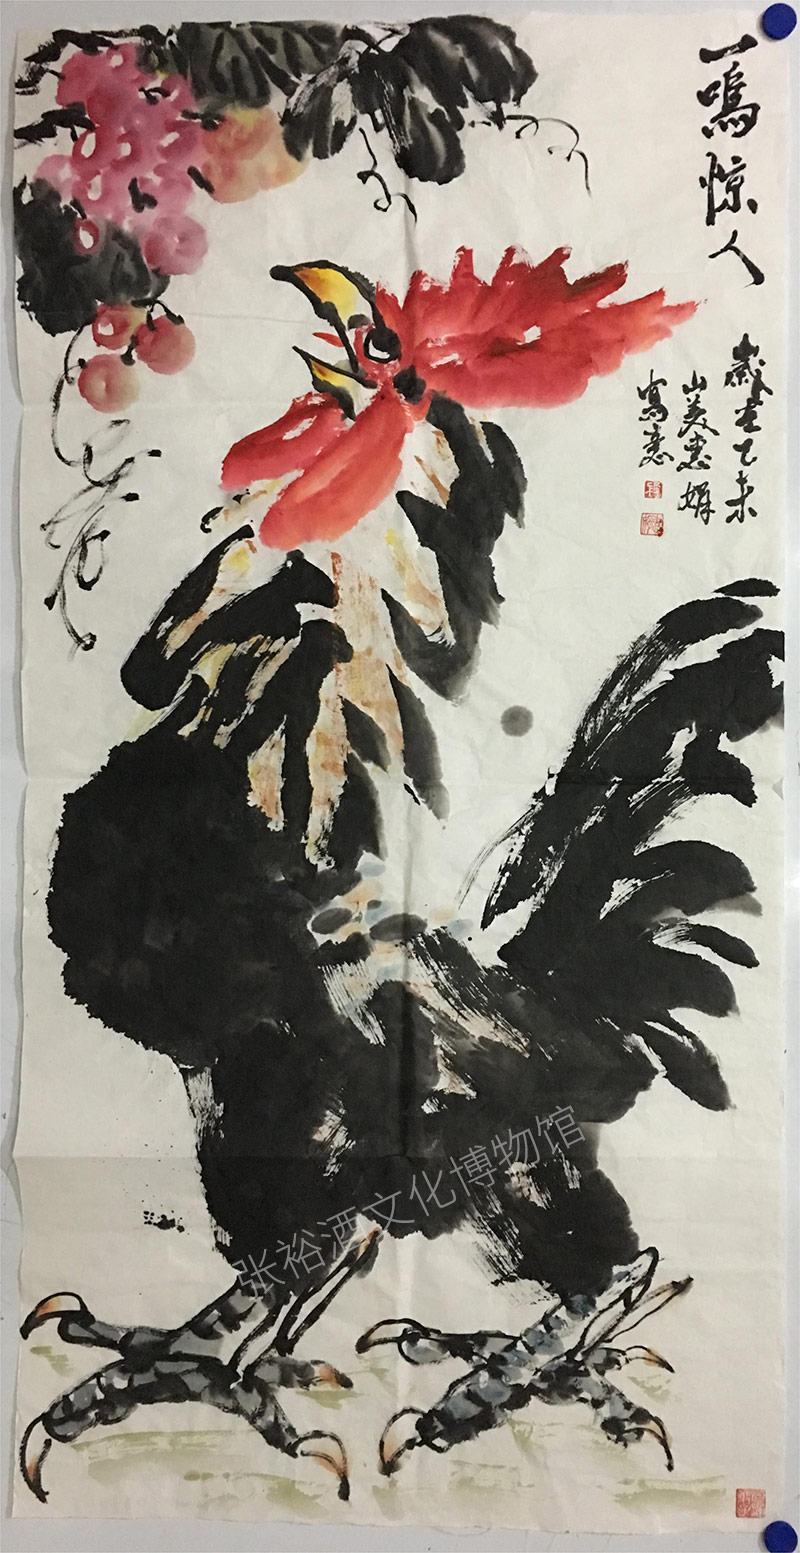 一鸣惊人
岁在乙未
山美惠娟
写意
张裕酒文化博物馆